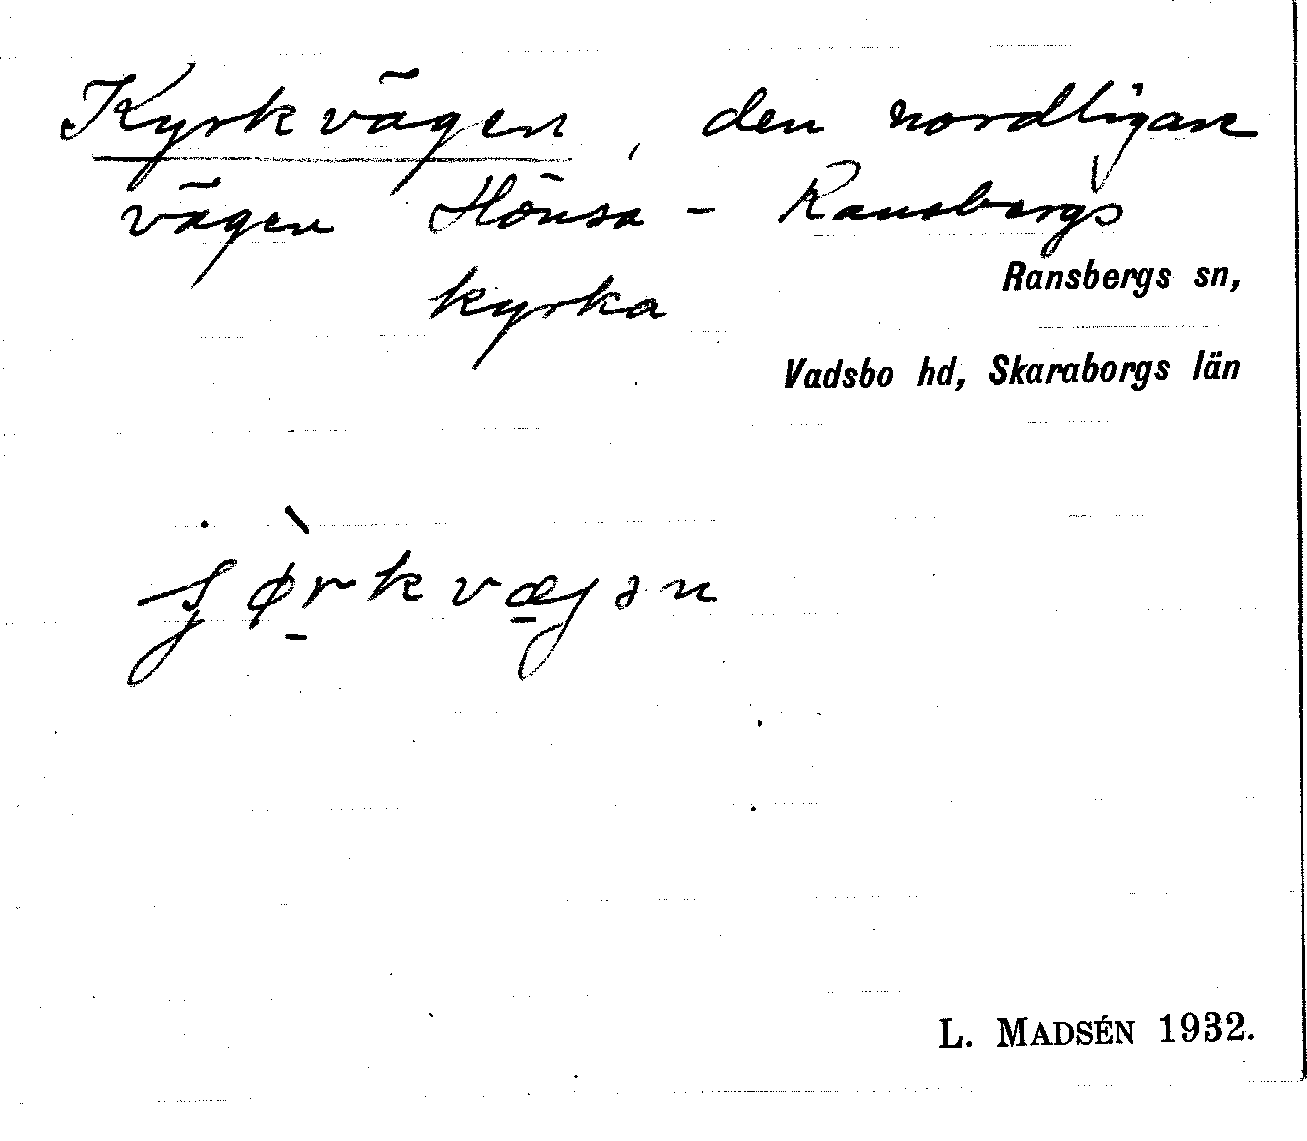 Kyrkvägen, den nordligare
vägen Hönsa - Ransbergs
kyrka
Ransbergs sn,
Vadsbo hd, Skaraborgs län
L. MADSÉN 1932.